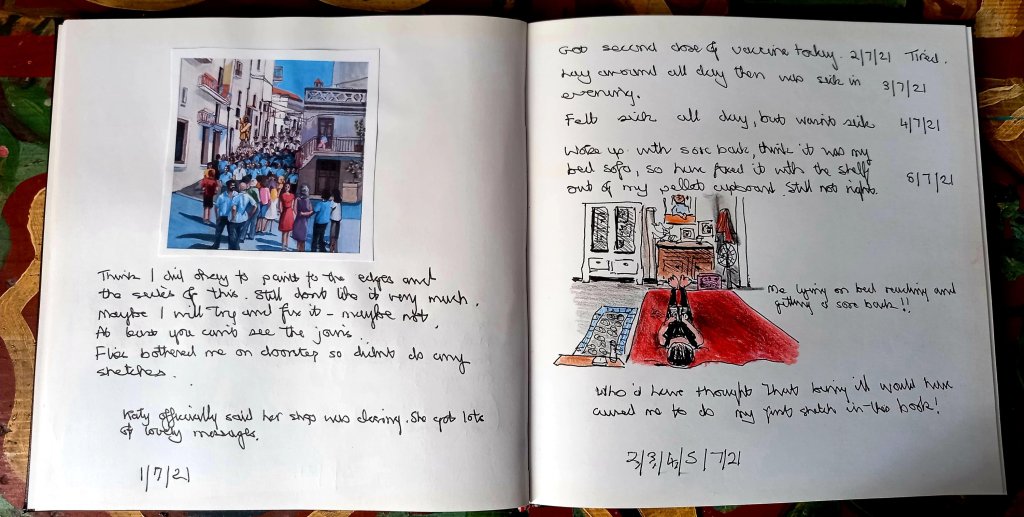 Think I did okay to paint to the edges and
the sides of this. Still don't like it very much.
Maybe I will try and fix it - maybe not.
At least you can't see the joins.
Flies bothered me on doorstep so didn't do any
sketches.
Katy officially said her shop was closing. She got lots
of lovely messages.
1/7/21
Got second dose of vaccine today. 2/7/21 Tired.
Lay around all day then was sick in 3/7/21
evening.
Felt sick all day, but wasn't sick 4/7/21
Woke up with sore back, think it was my
bed sofa, so have fixed it with the shelf
out of my pallet cupboard. Still not right. 5/7/21
Me lying on bed reading and
getting a sore back!!
Who'd have thought that being ill would have
caused me to do my first sketch in the book!
2/3/4/5/7/21